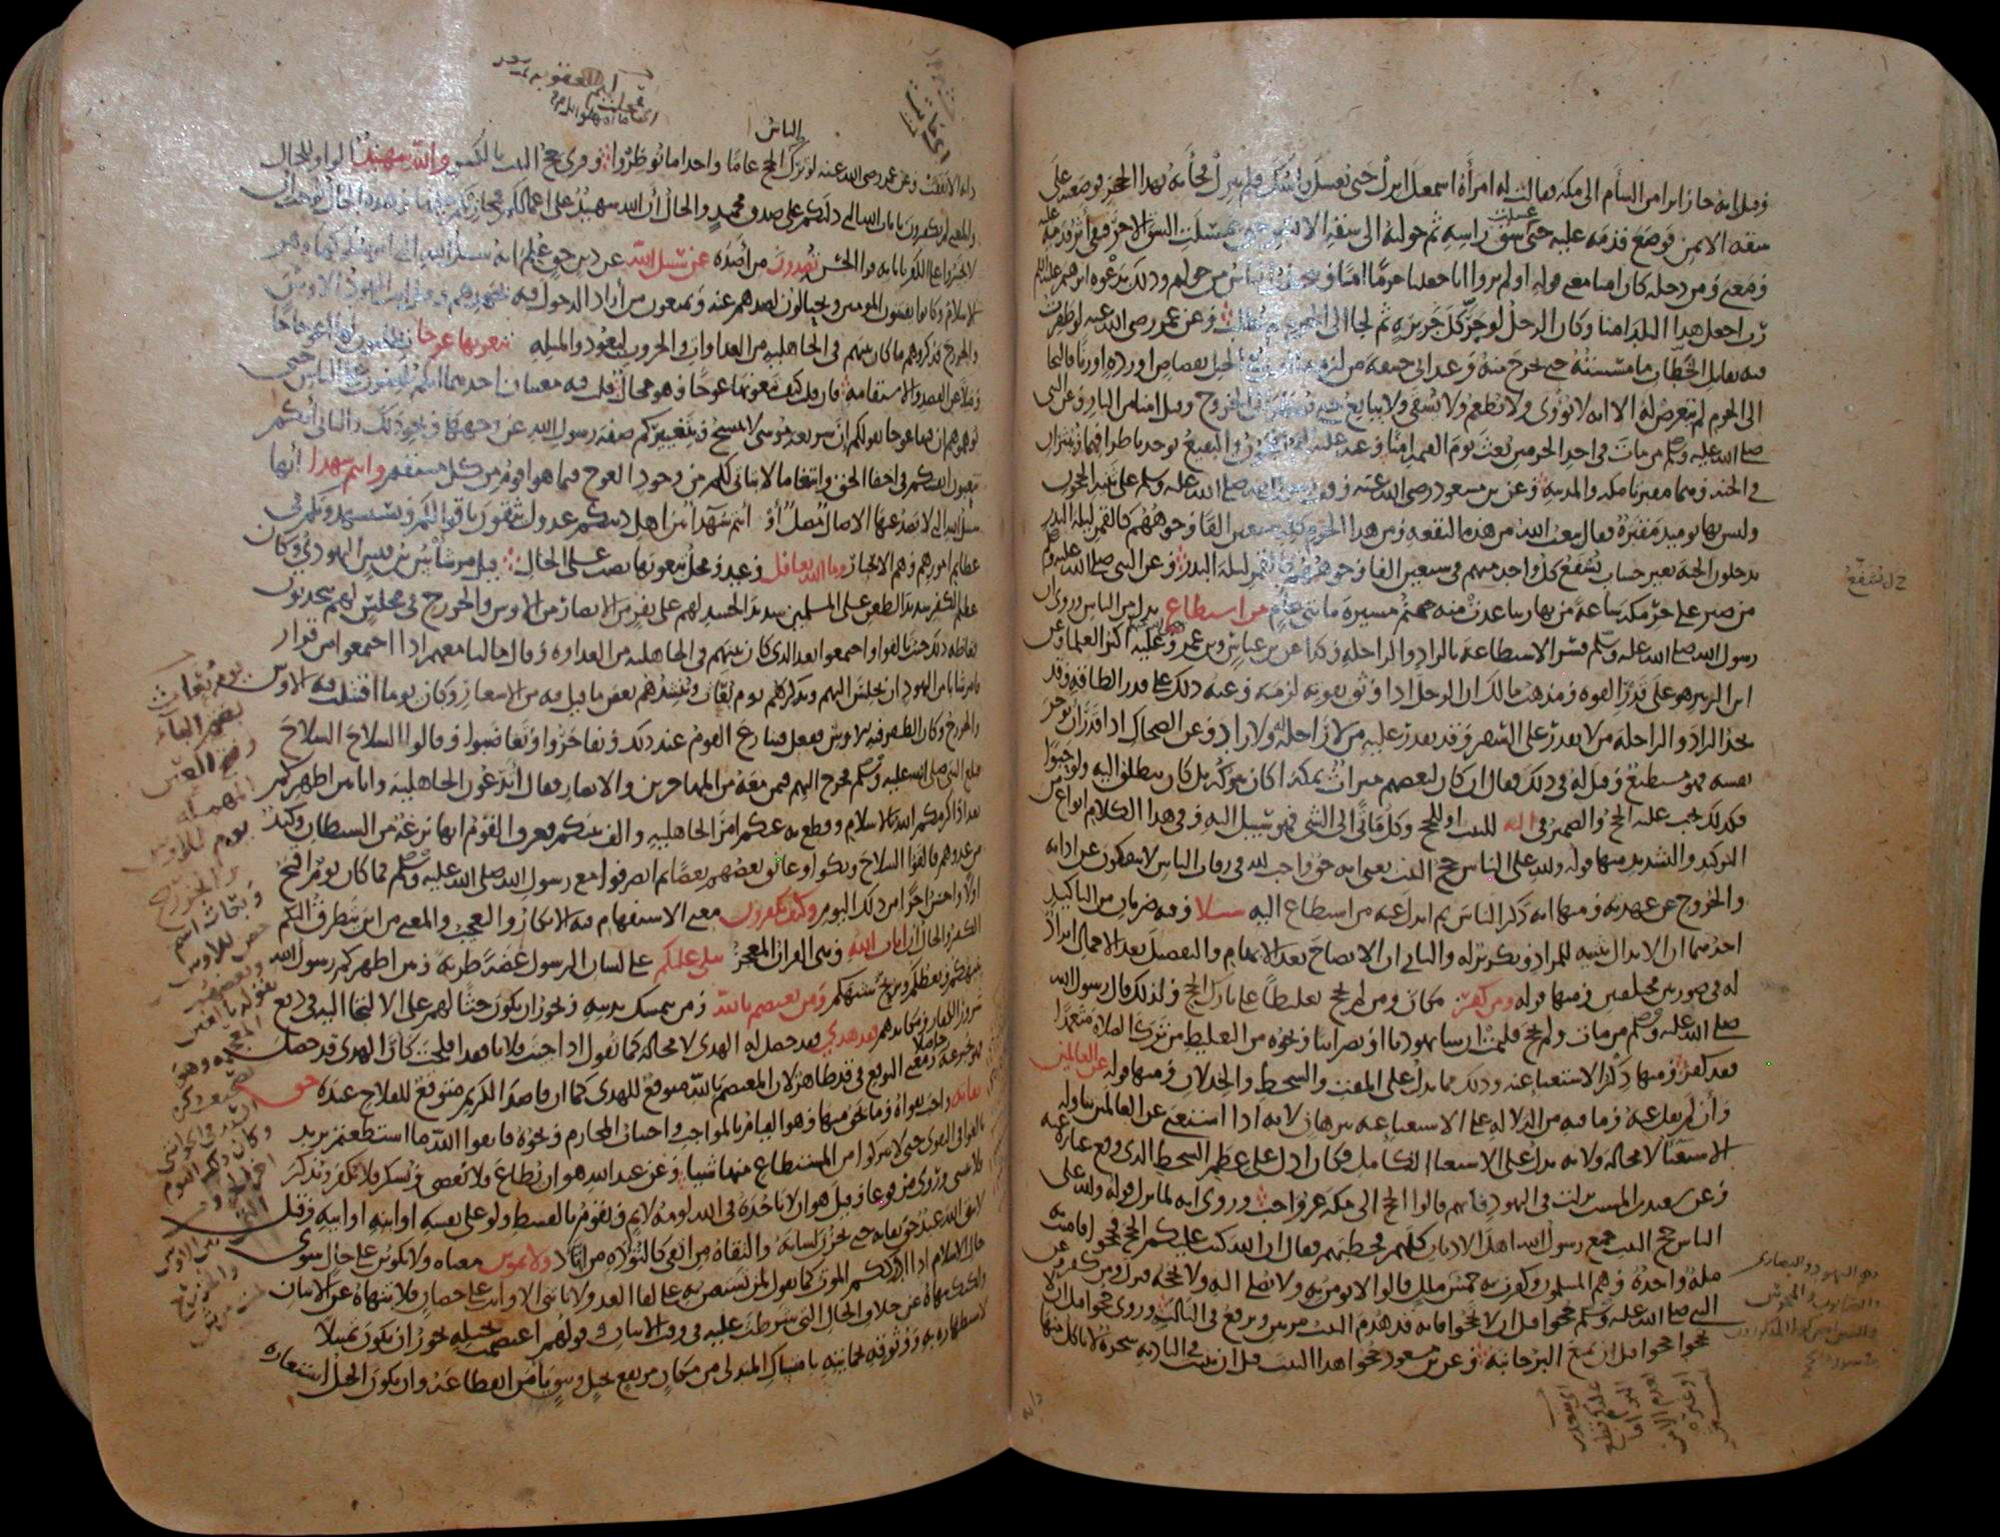 وقيل انه جاء زائرا من الشأم الى مكة فقالت له امرأة اسمعيل انزل حتى يغسل راسك فلم ينزل فجأته بهذا الحجر فوضعته على
شقه الايمن فوضع قدمه عليه حتى غسلت شق راسه ثم حولته الى شقه الايسر حتى غسلت الشق الاخر فبقي أثر قدميه عليه
ومعنى ومن دخله كان امنا معنى قوله اولم يروا انا جعلنا حرما امنا ويتخطف الناس من حولهم وذلك بدعوة ابرهيم عليه السلام
رب اجعل هذا البلد امنا وكان الرجل لو جر كل جريرة ثم لجا الى الحرم لم يطلب وعن عمر رضي الله عنه لو ظفرت
فيه بقاتل الخطاب ما مسسته حتى يخرج منه وعند ابي حنيفة من لزمه القتل في الحل بقصاص او ردة او زنا فالتجا
الى الحرم لم يتعرض له الا انه لا يؤوى ولا يطعم ولا يسقى ولا يبايع حتى يضطر الى الخروج وقيل امنا من النار وعن النبي
صلى الله عليه وسلم من مات في احد الحرمين بعث يوم القيمة امنا وعنه عليه السلام الحجون والبقيع يوخذ باطرافهما وينثران
في الجنة وهما مقبرتا مكة والمدينة وعن بن مسعود رضي الله عنه وقف رسول الله صلى الله عليه وسلم على ثنية الحجون
وليس بها يوميذ مقبرة فقال يبعث الله من هذه البقعة ومن هذا الحرم كله سبعين الفا وجوههم كالقمر ليلة البدر
يدخلون الجنة بغير حساب يشفع كل واحد منهم في سبعين الفا وجوههم كالقمر ليلة البدر وعن النبي صلى الله عليه وسلم
من صبر على حر مكة ساعة من نهار تباعدت منه جهنم مسيرة مائتي عام من استطاع بدل من الناس وروى ان
رسول الله صلى الله عليه وسلم فسر الاستطاعة بالزاد والراحلة وكذا عن بن عباس وبن عمر وعليه اكثر العلماء وعن
ابن الزبير هو على قدر القوة ومذهب مالك ان الرجل اذا وثق بقوته لزمه وعنه ذلك على قدر الطاقة وقد
يجد الزاد والراحلة من لا يقدر على السفر وقد يقدر عليه من لا راحلة له ولا زاد وعن الضحاك اذا قدر ان يوجر
نفسه فهو مستطيع وقيل له في ذلك فقال ان كان لبعضهم ميراث بمكة اكان يتركه بل كان ينطلق اليه ولو حبوا
فكذلك يجب عليه الحج والضمير في اليه للبيت او للحج وكل مأتى الى الشي فهو سبيل اليه وفي هذا الكلام انواع من
التوكيد والتشديد منها قوله ولله على الناس حج البيت يعني انه حق واجب لله في رقاب الناس لا ينفكون عن ادائه
والخروج عن عهدته ومنها انه ذكر الناس ثم ابدل عنه من استطاع اليه سبيلا وفيه ضربان من التاكيد
احدهما ان الابدال تثنية للمراد وتكرير له والثاني ان الايضاح بعد الابهام والتفصيل بعد الاجمال ايراد
له في صورتين مختلفتين ومنها قوله ومن كفر مكان ومن لم يحج تغليظا على تارك الحج ولذلك قال رسول الله
صلى الله عليه وسلم من مات ولم يحج فليمت ان شا يهوديا او نصرانيا ونحوه من التغليظ من ترك الصلاة متعمدا
فقد كفر ومنها ذكر الاستغناء عنه وذلك مما يدل على المقت والسخط والخذلان ومنها قوله عن العالمين
وأن لم يقل عنه وما فيه من الدلالة على الاستغناء عنه ببرهان لانه اذا استغنى عن العالمين تناوله
الاستغناء لا محالة ولانه يدل على الاستغناء الكامل فكان ادل على عظم السخط الذي وقع عبارة عنه
وعن سعيد بن المسيب نزلت في اليهود فانهم قالوا الحج الى مكة غير واجب وروي انه لما نزل قوله ولله على
الناس حج البيت جمع رسول الله اهل الاديان كلهم فخطبهم فقال ان الله كتب عليكم الحج فحجوا فامنت به
ملة واحدة وهم المسلمون وكفرت به خمس ملل قالوا لا نومن به ولا نصلي اليه ولا نحجه فنزل ومن كفر وعن
النبي صلى الله عليه وسلم حجوا قبل ان لا تحجوا فانه قد هدم البيت مرتين ويرفع في الثالثة وروي حجوا قبل ان لا
تحجوا حجوا قبل ان يمنع البر جانبه وعن بن مسعود حجوا هذا البيت قبل ان ينبت في البادية شجرة لا تاكل منها
وهم اليهود والنصارى
والصابون والمجوس
دابة
الناس
دابة الا نفقت وعن عمر رضي الله عنه لو ترك الحج عاما واحدا ما نوظروا وقرى حج البيت بالكسر والله شهيد الواو للحال
والمعنى لم تكفرون بايات الله التي دلتكم على صدق محمد والحال أن الله شهيد على اعمالكم فمجازيكم عليها وهذه الحال توجب ان
لا تجسروا على الكفر باياته قرا الحسن تصدون من أصده عن سبيل الله عن دين حق علم انه سبيل الله التي امر بسلوكها وهو
الاسلام وكانوا يفتنون المومنين ويحتالون لصدهم عنه ويمنعون من أراد الدخول فيه بجهدهم وقيل اتت اليهود الاوس
والخزرج فذكروهم ما كان بينهم في الجاهلية من العداوات والحروب ليعودوا لمثله تبغونها عوجا تطلبون لها اعوجاجا
وميلا عن القصد والاستقامة فان قلت كيف تبغونها عوجا وهو محال قلت فيه معنيان احدهما انكم تلبسون على الناس حتى
توهموهم ان فيها عوجا بقولكم إن شريعة موسى لا تنسخ وبتغييركم صفة رسول الله عن وجهها ونحو ذلك والثاني أنكم
تتعبون انفسكم في اخفا الحق وابتغا ما لا يتاتى لكم من وجود العوج فيما هو اقوم من كل مستقيم وانتم شهدا أنها
سبيل الله التي لا يصد عنها الا ضال مضل أو أنتم شهداء بين اهل دينكم عدول يثقون باقوالكم ويستشهدونكم في
عظائم امورهم وهم الاحبار وما الله بغافل وعيد ومحل تبغونها نصب على الحال قيل مر شأس بن قيس اليهودي وكان
عظيم الكفر شديد الطعن على المسلمين شديد الحسد لهم على نفر من الانصار من الاوس والخزرج في مجلس لهم يتحدثون
فغاظه ذلك حيث تالفوا واجتمعوا بعد الذي كان بينهم في الجاهلية من العداوة وقال ما لنا معهم اذا اجتمعوا من قرار
فامر شابا من اليهود ان يجلس اليهم ويذكرهم يوم بعاث وينشدهم بعض ما قيل فيه من الاشعار وكان يوما اقتتلت فيه الاوس
والخزرج وكان الظفر فيه للاوس ففعل فتنازع القوم عند ذلك وتفاخروا وتغاضبوا وقالوا السلاح السلاح
فبلغ النبي صلى الله عليه وسلم فخرج اليهم فيمن معه من المهاجرين والانصار فقال أتدعون الجاهلية وانا بين اظهركم
بعد اذ اكرمكم الله بالاسلام وقطع به عنكم امر الجاهلية والف بينكم فعرف القوم انها نزغة من الشيطان وكيد
من عدوهم فالقوا السلاح وبكوا وعانق بعضهم بعضا ثم انصرفوا مع رسول الله صلى الله عليه وسلم فما كان يوم اقبح
اولا واحسن اخرا من ذلك اليوم وكيف تكفرون معنى الاستفهام فيه الانكار والتعجب والمعنى من اين يتطرق اليكم
الكفر والحال أن ايات الله وهي القران المعجز تتلى عليكم على لسان الرسول غضة طرية وبين اظهركم رسول الله
ينبهكم ويعظكم ويزيح شبهكم ومن يعتصم بالله ومن يتمسك بدينه ويجوز ان يكون حثا لهم على الالتجا اليه في دفع
شرور الكفار ومكايدهم فقد هدي فقد حصل له الهدى لا محالة كما تقول اذا جيت فلانا فقد افلحت كأن الهدى قد حصل
فهو يخبر عنه حاصلا ومعنى التوقع في قد ظاهر لان المعتصم بالله متوقع للهدى كما ان قاصد الكريم متوقع للفلاح عنده حق
تقاته واجب تقواه وما يحق منها وهو القيام بالمواجب واجتناب المحارم ونحوه فاتقوا الله ما استطعتم يريد
بالغوا في التقوى حتى لا تتركوا من المستطاع منها شيا وعن عبد الله هو ان يطاع ولا يعصى ويشكر فلا يكفر ويذكر
فلا ينسى وروي مرفوعا وقيل هو ان لا تاخذه في الله لومة لايم ويقوم بالقسط ولو على نفسه او ابنه او ابيه وقيل
لا يتقي الله عبد حق تقاته حتى يخزن لسانه والتقاة من اتقى كالتؤدة من اتأد ولا تموتن معناه ولا تكونن على حال سوى
حال الاسلام اذا ادرككم الموت كما تقول لمن تستعين به على لقا العدو لا تاتني الا وانت على حصان فلا تنهاه عن الاتيان
ولكنك تنهاه عن خلاف الحال التي شرطت عليه في وقت الاتيان قولهم اعتصمت بحبله يجوز ان يكون تمثيلا
لاستظهاره به ووثوقه بحمايته بامتساك المتدلي من مكان مرتفع بحبل وثيق يأمن انقطاعه وان يكون الحبل استعارة
يوم بعاث
بضم الباء
وفتح العين
المهملة
يوم للاوس
والخزرج
وبعاث اسم
حصن للاوس